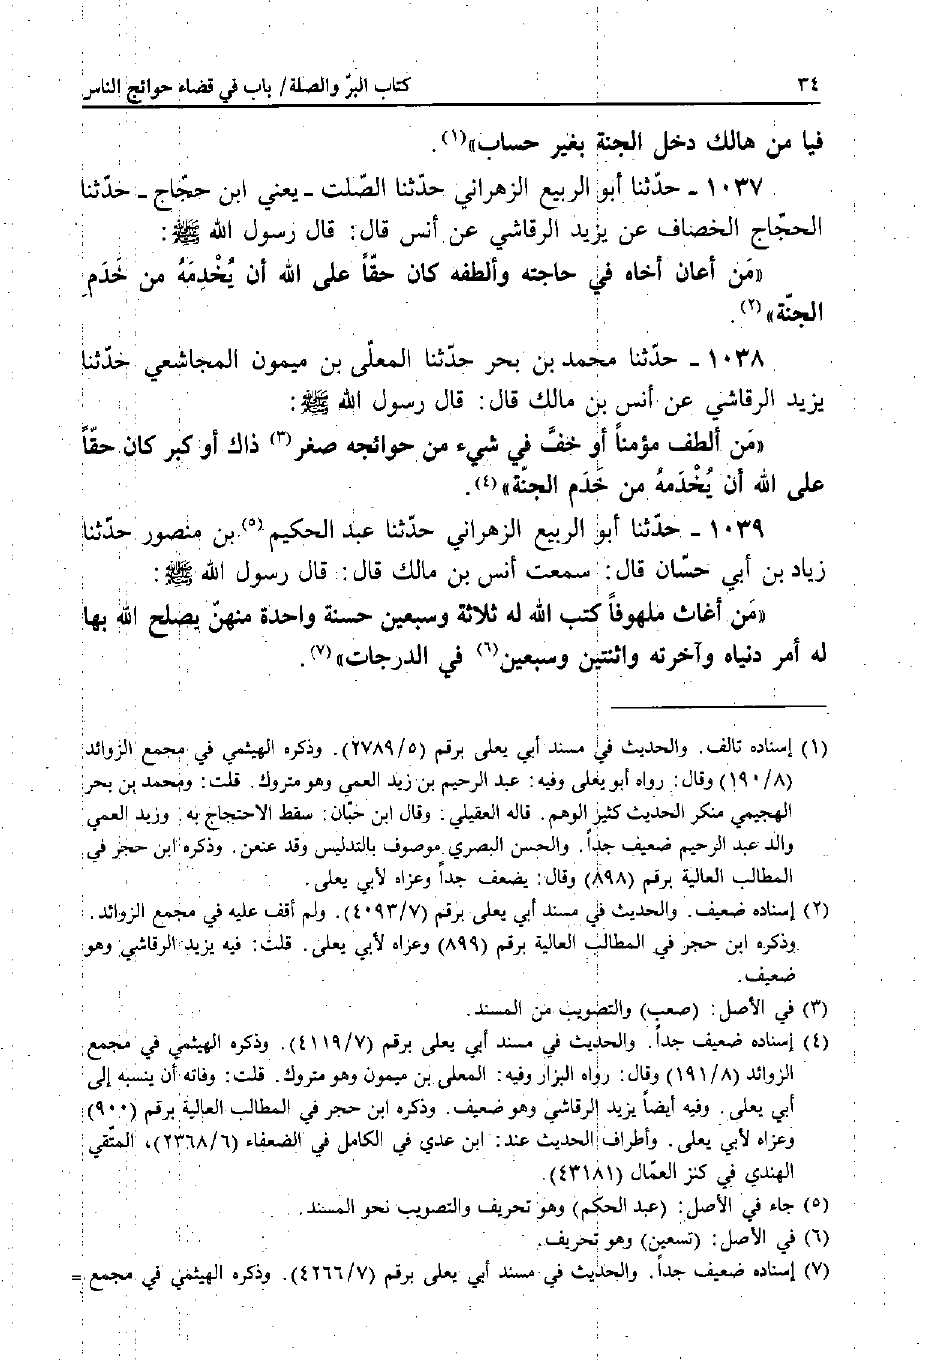 ٣٤
كتاب البرّ والصلة/ باب في قضاء حوائج الناس
فيا من هالك دخل الجنة بغير حساب»(١).
١٠٣٧ ـ حدّثنا أبو الربيع الزهراني حدّثنا الصّلت ـ يعني ابن حجّاج ـ حدّثنا
الحجّاج الخصاف عن يزيد الرقاشي عن أنس قال: قال رسول الله ﷺ:
«مَن أعان أخاه في حاجته وألطفه كان حقّاً على الله أن يُخْدِمَهُ من خَدَمِ
الجنّة»(٢).
١٠٣٨ ـ حدّثنا محمد بن بحر حدّثنا المعلّى بن ميمون المجاشعي حدّثنا
يزيد الرقاشي عن أنس بن مالك قال: قال رسول الله ﷺ:
«مَن ألطف مؤمناً أو خفَّ في شيء من حوائجه صغر(٣) ذاك أو كبر كان حقّاً
على الله أن يُخْدَمهُ من خَدَم الجنّة»(٤).
١٠٣٩ ـ حدّثنا أبو الربيع الزهراني حدّثنا عبد الحكيم(٥) بن منصور حدّثنا
زياد بن أبي حسّان قال: سمعت أنس بن مالك قال: قال رسول الله ﷺ:
«مَن أغاث ملهوفاً كتب الله له ثلاثة وسبعين حسنة واحدة منهنّ يصلح الله بها
له أمر دنياه وآخرته واثنتين وسبعين(٦) في الدرجات»(٧).
(١) إسناده تالف. والحديث في مسند أبي يعلى برقم (٢٧٨٩/٥). وذكره الهيثمي في مجمع الزوائد
(١٩٠/٨) وقال: رواه أبو يعلى وفيه: عبد الرحيم بن زيد العمي وهو متروك. قلت: ومحمد بن بحر
الهجيمي منكر الحديث كثير الوهم. قاله العقيلي: وقال ابن حبّان: سقط الاحتجاج به. وزيد العمي
والد عبد الرحيم ضعيف جداً. والحسن البصري موصوف بالتدليس وقد عنعن. وذكره ابن حجر في
المطالب العالية برقم (٨٩٨) وقال: يضعف جداً وعزاه لأبي يعلى.
(٢) إسناده ضعيف. والحديث في مسند أبي يعلى برقم (٤٠٩٣/٧). ولم أقف عليه في مجمع الزوائد.
وذكره ابن حجر في المطالب العالية برقم (٨٩٩) وعزاه لأبي يعلى. قلت: فيه يزيد الرقاشي وهو
ضعيف.
(٣) في الأصل: (صعب) والتصويب من المسند.
(٤) إسناده ضعيف جداً. والحديث في مسند أبي يعلى برقم (٤١١٩/٧). وذكره الهيثمي في مجمع
الزوائد (١٩١/٨) وقال: رواه البزار وفيه: المعلى بن ميمون وهو متروك. قلت: وفاته أن ينسبه إلى
أبي يعلى. وفيه أيضاً يزيد الرقاشي وهو ضعيف. وذكره ابن حجر في المطالب العالية برقم (٩٠٠)
وعزاه لأبي يعلى. وأطراف الحديث عند: ابن عدي في الكامل في الضعفاء (٢٣٦٨/٦)، المتّقي
الهندي في كنز العمّال (٤٣١٨١).
(٥) جاء في الأصل: (عبد الحكم) وهو تحريف والتصويب نحو المسند.
(٦) في الأصل: (تسعين) وهو تحريف.
(٧) إسناده ضعيف جداً. والحديث في مسند أبي يعلى برقم (٤٢٦٦/٧). وذكره الهيثمي في مجمع =